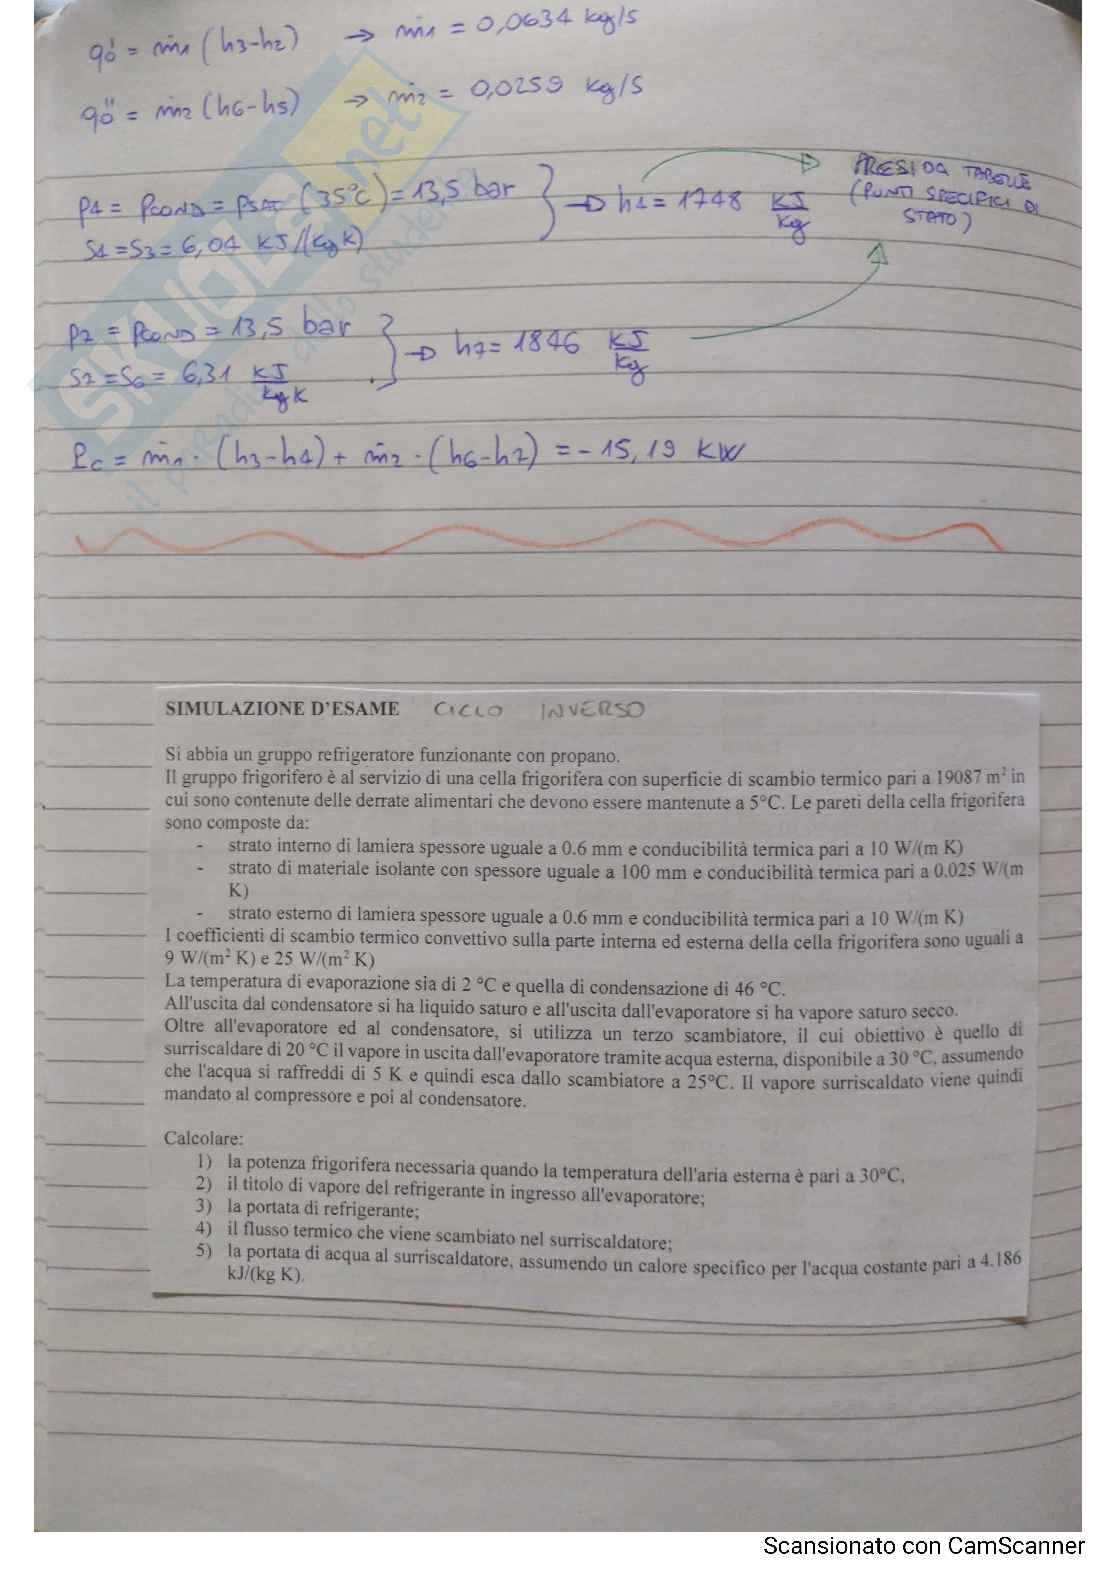 q̇o' = ṁ1 (h3-h2) → ṁ1 = 0,0634 kg/s
q̇o'' = ṁ2 (h6-h5) → ṁ2 = 0,0259 kg/s
p4 = pCOND = pSAT (35°C) = 13,5 bar
S4 = S3 = 6,04 KJ/(kg K)
→ h4 = 1748 KJ/kg
PRESI DA TABELLE
(PUNTI SPECIFICI DI
STATO)
p7 = pCOND = 13,5 bar
S7 = S6 = 6,31 KJ/kg K
→ h7 = 1846 KJ/kg
Pc = ṁ1 · (h3-h4) + ṁ2 · (h6-h7) = - 15,19 KW
SKUOLA.net
il paradiso dello studente
SIMULAZIONE D'ESAME CICLO INVERSO
Si abbia un gruppo refrigeratore funzionante con propano.
Il gruppo frigorifero è al servizio di una cella frigorifera con superficie di scambio termico pari a 19087 m² in
cui sono contenute delle derrate alimentari che devono essere mantenute a 5°C. Le pareti della cella frigorifera
sono composte da:
- strato interno di lamiera spessore uguale a 0.6 mm e conducibilità termica pari a 10 W/(m K)
- strato di materiale isolante con spessore uguale a 100 mm e conducibilità termica pari a 0.025 W/(m
K)
- strato esterno di lamiera spessore uguale a 0.6 mm e conducibilità termica pari a 10 W/(m K)
I coefficienti di scambio termico convettivo sulla parte interna ed esterna della cella frigorifera sono uguali a
9 W/(m² K) e 25 W/(m² K)
La temperatura di evaporazione sia di 2 °C e quella di condensazione di 46 °C.
All'uscita dal condensatore si ha liquido saturo e all'uscita dall'evaporatore si ha vapore saturo secco.
Oltre all'evaporatore ed al condensatore, si utilizza un terzo scambiatore, il cui obiettivo è quello di
surriscaldare di 20 °C il vapore in uscita dall'evaporatore tramite acqua esterna, disponibile a 30 °C, assumendo
che l'acqua si raffreddi di 5 K e quindi esca dallo scambiatore a 25°C. Il vapore surriscaldato viene quindi
mandato al compressore e poi al condensatore.
Calcolare:
1) la potenza frigorifera necessaria quando la temperatura dell'aria esterna è pari a 30°C,
2) il titolo di vapore del refrigerante in ingresso all'evaporatore;
3) la portata di refrigerante;
4) il flusso termico che viene scambiato nel surriscaldatore;
5) la portata di acqua al surriscaldatore, assumendo un calore specifico per l'acqua costante pari a 4.186
kJ/(kg K).
Scansionato con CamScanner